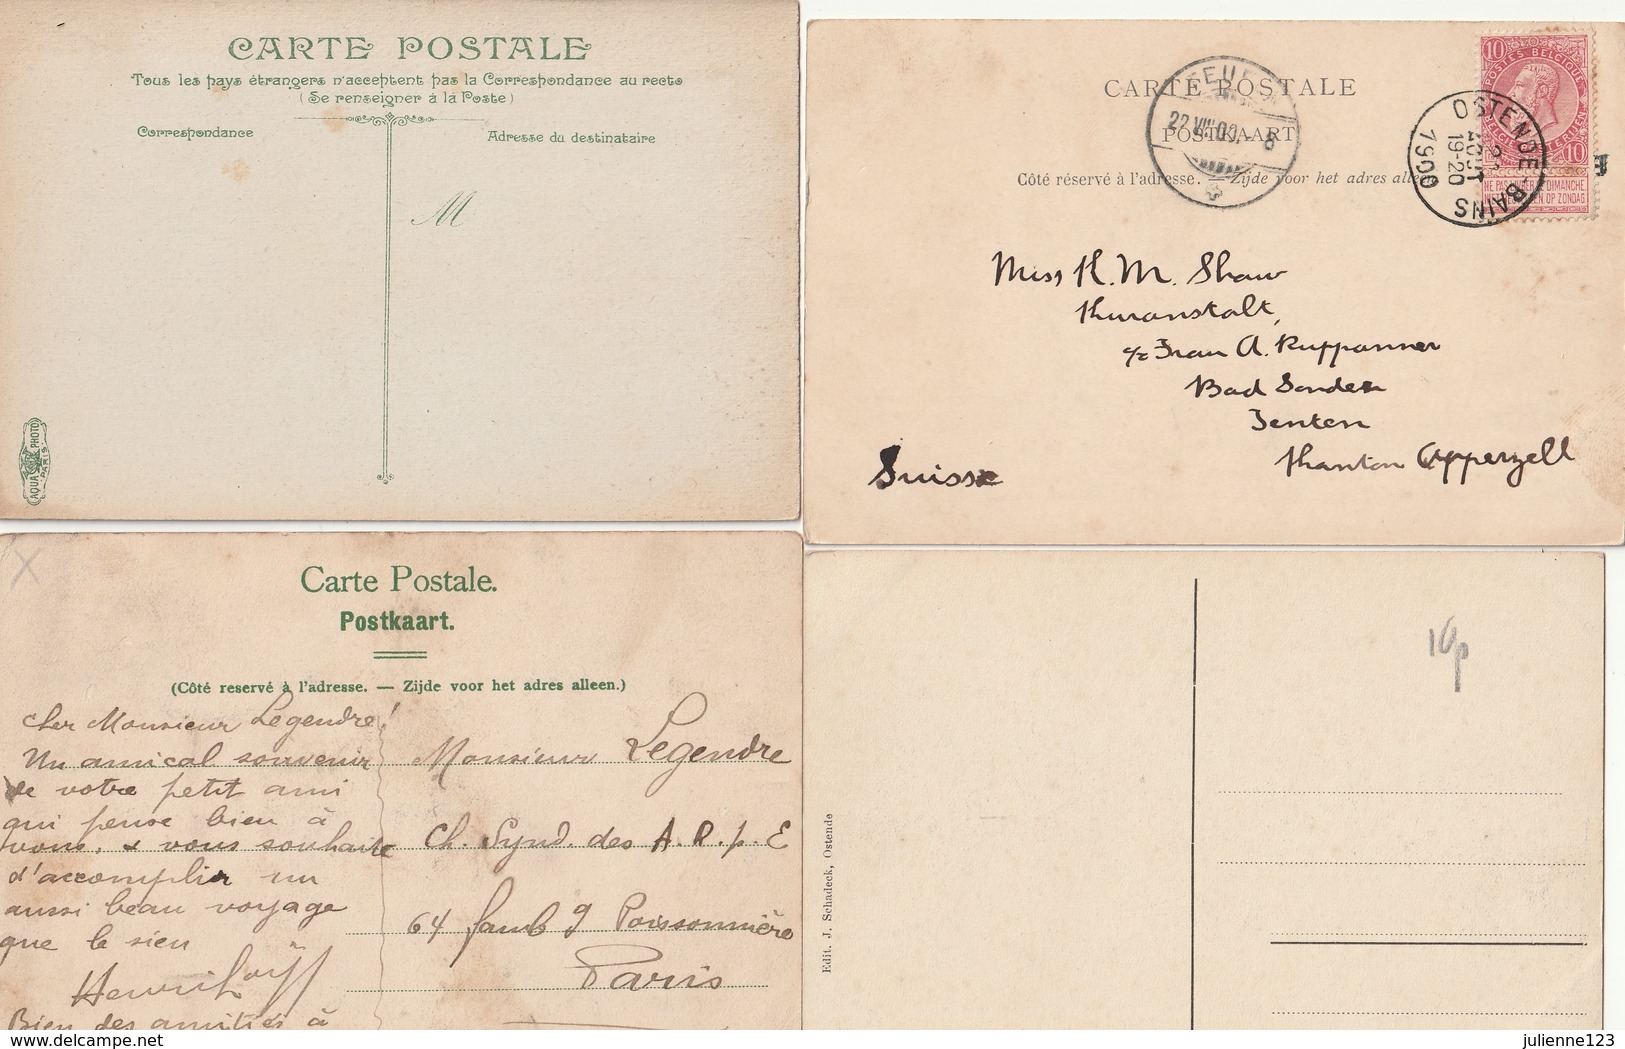 CARTE POSTALE
Tous les pays étrangers n'acceptent pas la Correspondance au recto
(Se renseigner à la Poste)
Correspondance
Adresse du destinataire
M
AQUA PHOTO
PARIS
CARTE POSTALE
POSTKAART
Côté réservé à l'adresse. — Zijde voor het adres alleen
22 VIII 00 - 8
10
POSTES BELGIQUE
10
NE PAS LIVRER LE DIMANCHE
OP ZONDAG
OSTENDE-BAINS
AOUT
19-20
1900
Miss H. M. Shaw
Kuranstalt,
c/o Frau A. Ruppanner
Bad Sonder
Teufen
Kanton Appenzell
Suisse
X
Carte Postale.
Postkaart.
(Côté reservé à l'adresse. — Zijde voor het adres alleen.)
Cher Monsieur Legendre!
Un amical souvenir
de votre petit ami
qui pense bien à
vous, & vous souhaite
d'accomplir un
aussi beau voyage
que le sien
Henri
Bien des amitiés à
Monsieur Legendre
Ch. Synd. des A. R. p. E
64 faubg Poissonnière
Paris
10p
Edit. J. Schadeck, Ostende
delcampe.net
julienne123